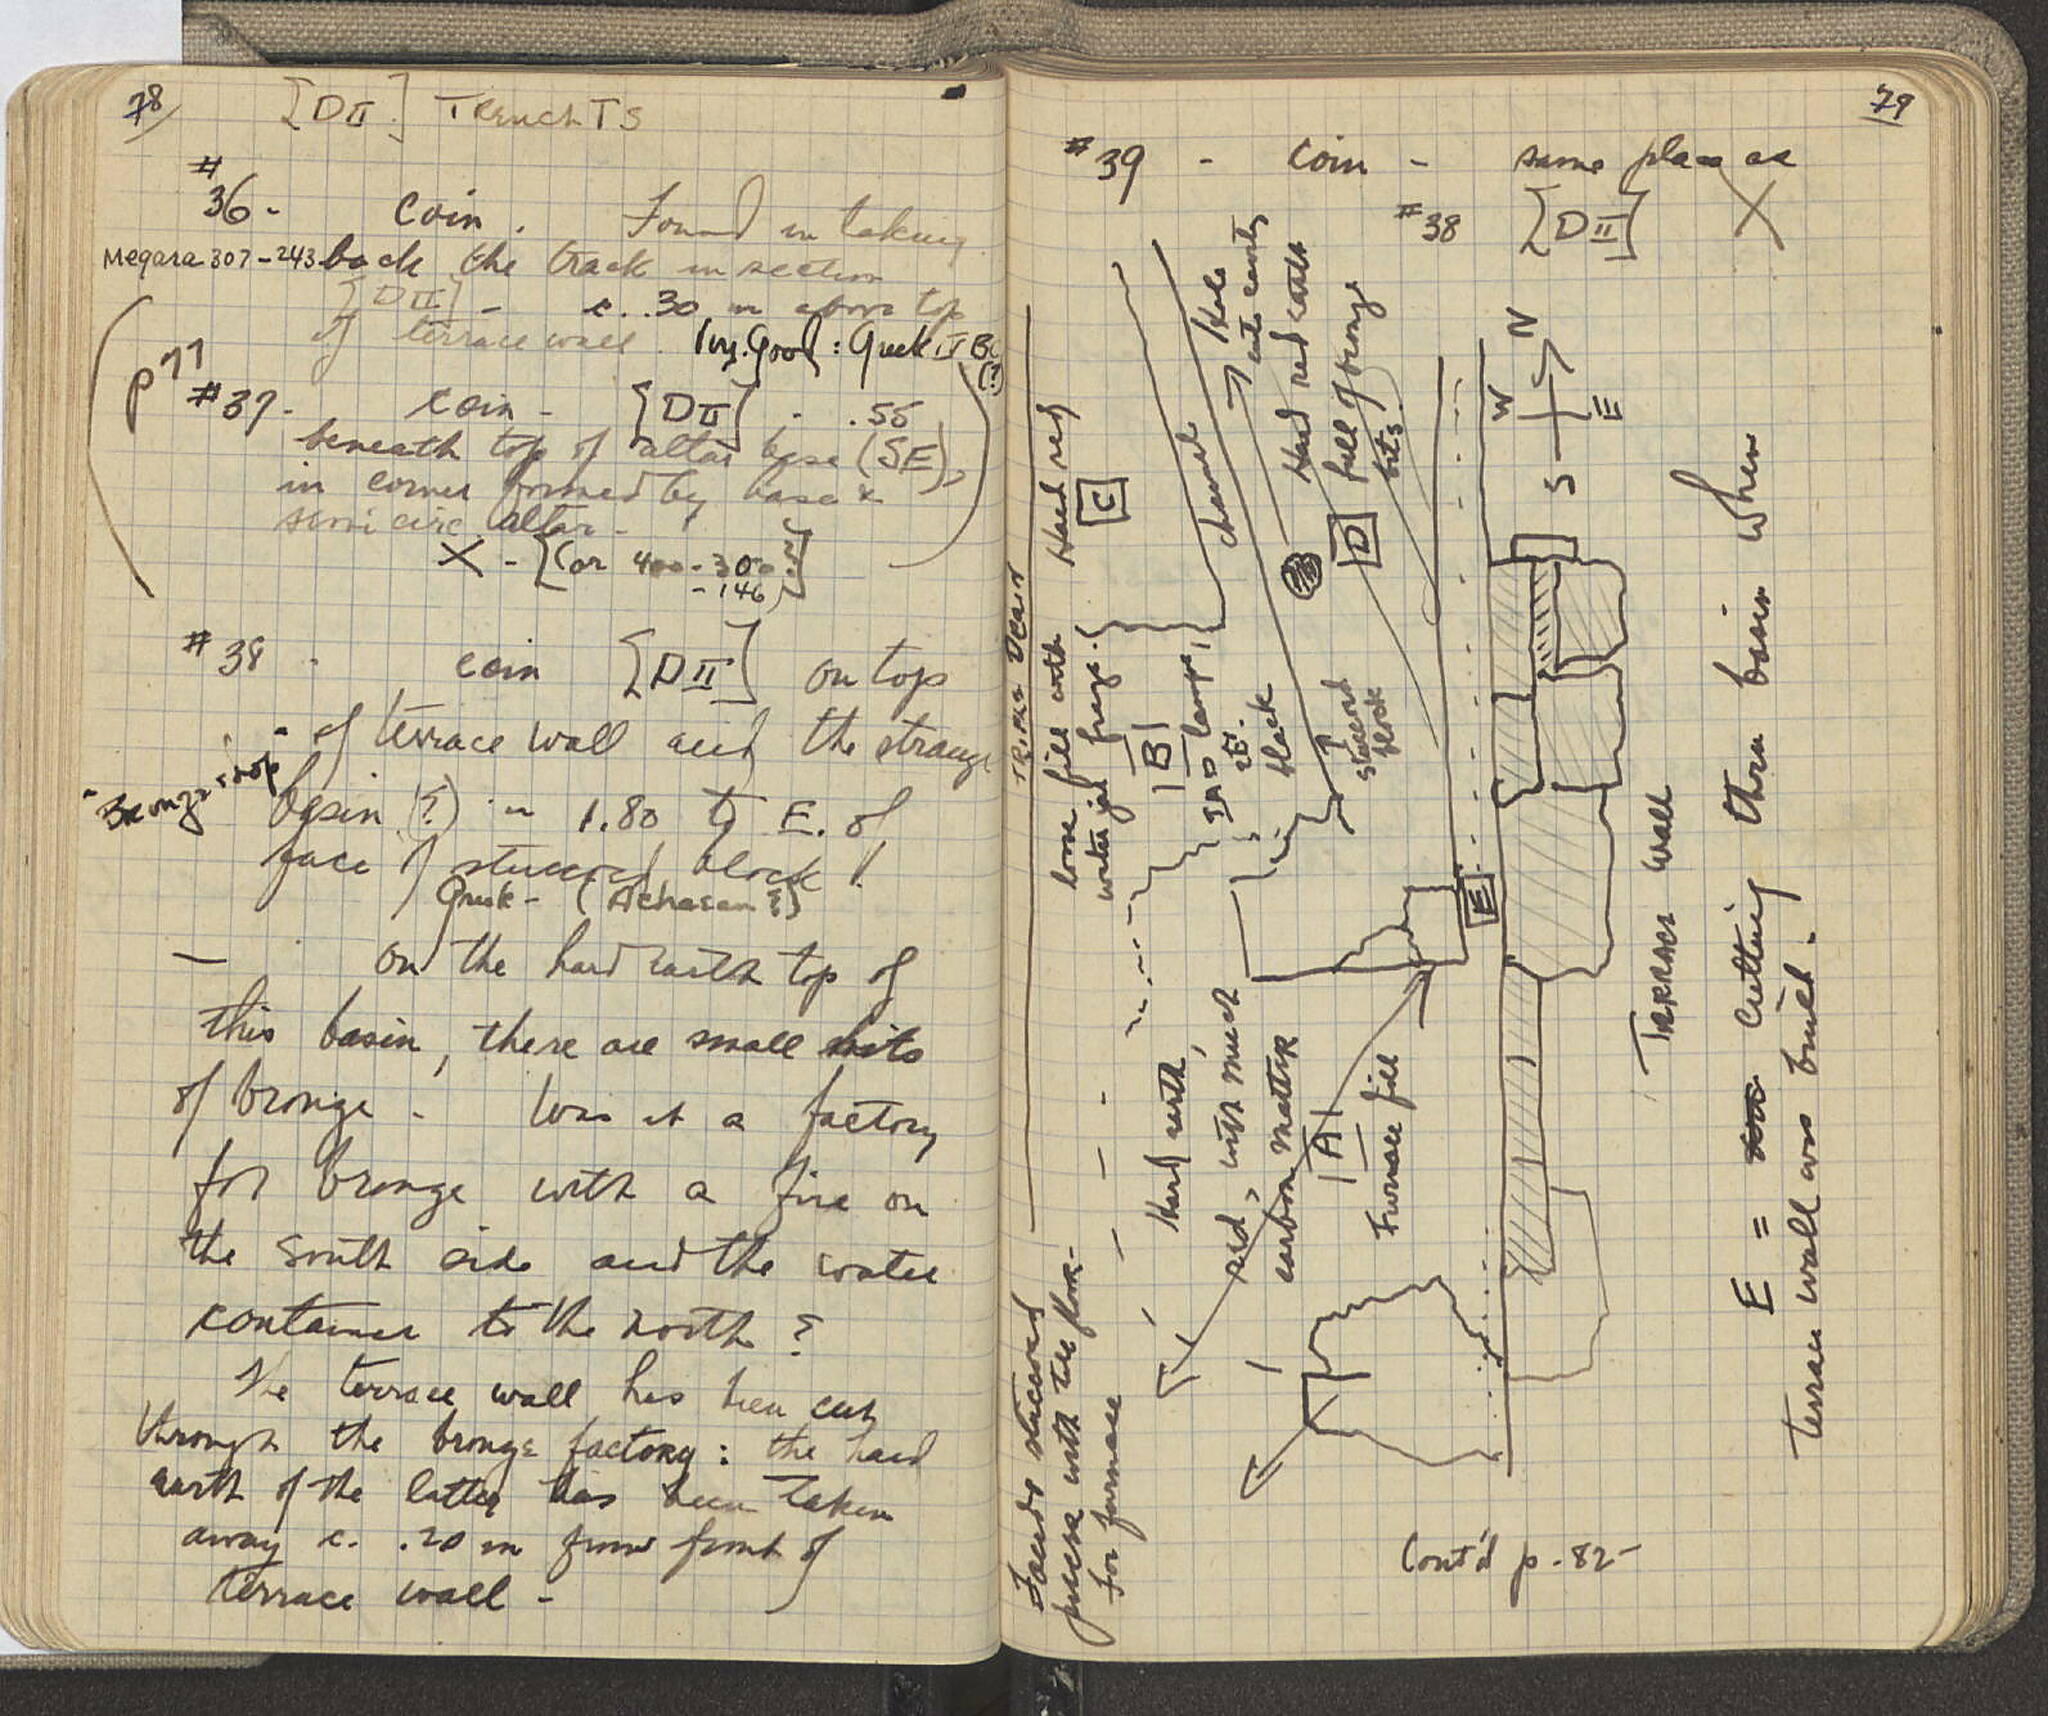 78/ [DII] Trench TS
#
36 - coin. Found in taking
Megara 307-243 back the track in section
[DII] - c. .30 m above top
of terrace wall. Very Good: Greek
p 77
#37 - coin - [DII] - .55
beneath top of altar base (SE),
in corner formed by base &
semi circ altar -
X - [Cor 400-300
- 146]
#38 - coin [DII] on top
of terrace wall and the strange
"Bronze
basin (?) - 1.80 to E. of
face of stuccoed block.
Greek - (Achaean?)
— On the hard earth top of
this basin, there are small bits
of bronze - Was it a factory
for bronze with a fire on
the south side and the water
container to the north ?
The terrace wall has been cut
through the bronze factory: the hard
earth of the latter has been taken
away c. .20 m from front of
terrace wall -
79
#39 - coin - same place as
#38 [DII] X
N
W
E
S
Triple Drain
Hard red
C
channel
Hole
into cavity
Hard red earth
D full of bronze
bits
loose fill with
water jar frags.
B
lamps,
black
stuccoed
block
Hard earth,
red, with much
carbon matter
A
Furnace fill
E
Terrace wall
E = cutting thru basin when
terrace wall was built.
Faced stuccoed
pieces with tile floor
for furnace
Cont'd p. 82 -